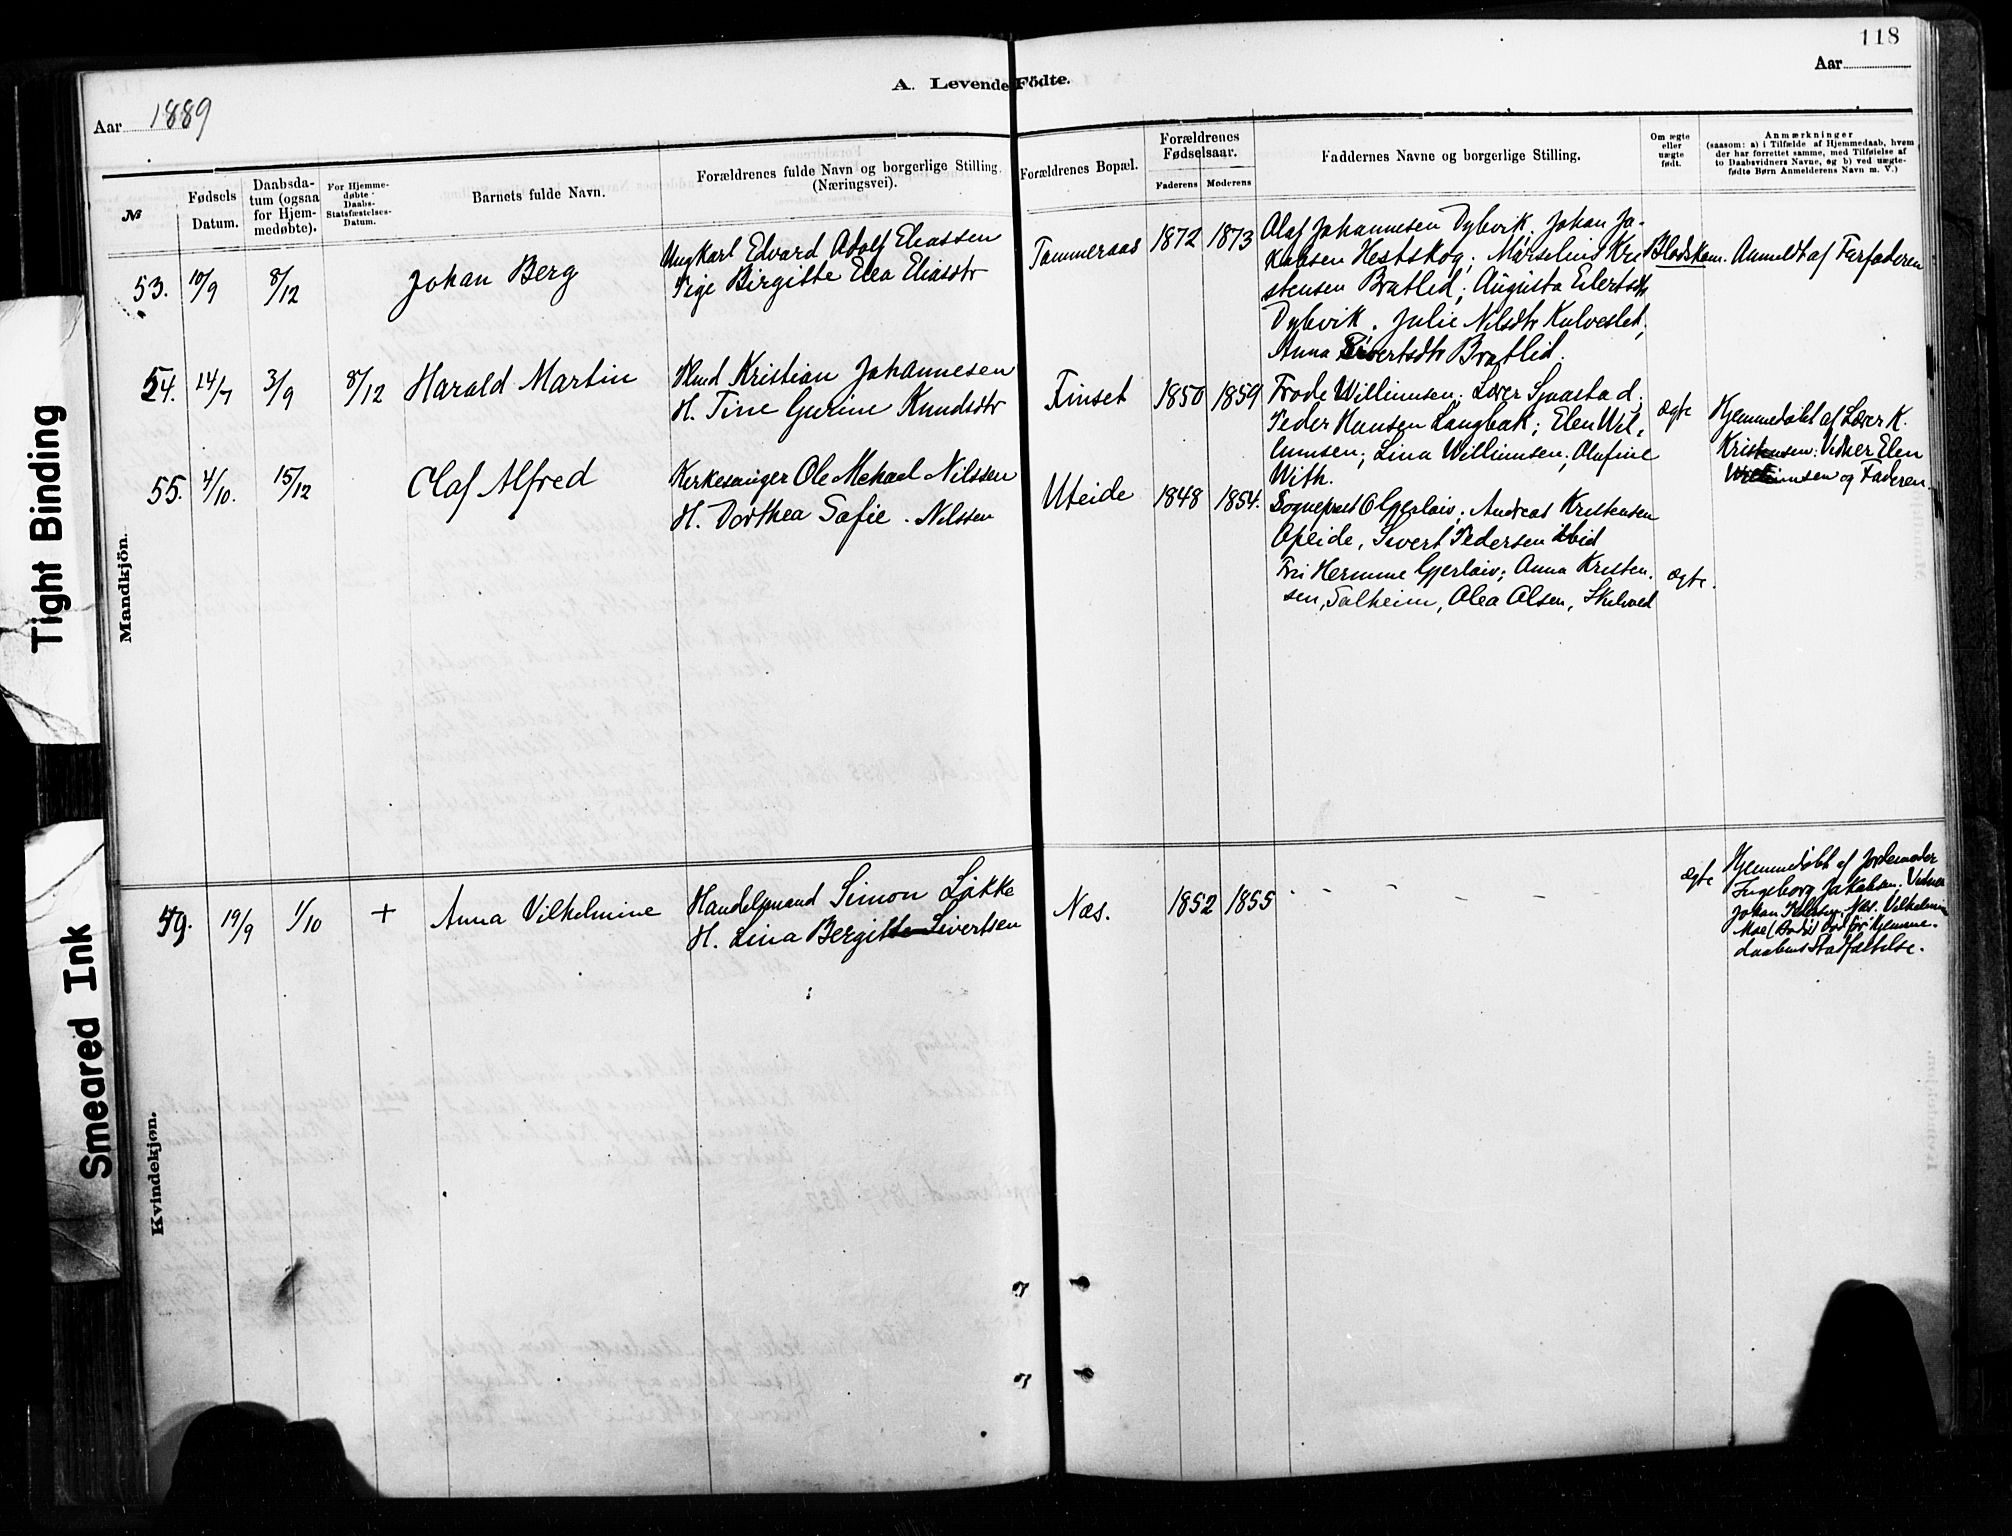 118
Aar
A. Levende Födte.
Aar 1889
№
Fødsels Datum.
Daabsdatum (ogsaa for Hjemmedøbte).
For Hjemmedøbte Daabs-Statsfæstelses-Datum.
Barnets fulde Navn.
Forældrenes fulde Navn og borgerlige Stilling.
(Næringsvei).
Forældrenes Bopæl.
Forældrenes Fødselsaar.
Faderens
Moderens
Faddernes Navne og borgerlige Stilling.
Om ægte eller uægte født.
Anmærkninger
(saasom: a) i Tilfælde af Hjemmedaab, hvem
der har forrettet samme, med Tilføielse af
to Daabsvidners Navne, og b) ved uægte-
fødte Børn Anmelderens Navn m. V.)
Mandkjön.
53. 10/9 8/12 Johan Berg
Ungkarl Edvard Adolf Eliassen
Pige Birgitte Elea Eliasdtr
Tammeraas 1872 1873
Olaf Johannesen Dybvik. Johan Ja-
kobsen Hestskog; Marselius Kri
stensen Bratlid; Augusta Eilertsdtr
Dybvik. Julie Nilsdtr Kalveslet,
Anna Sivertsdtr Bratlid.
Blodskam. Anmeldt af Farfaderen
54. 14/7 3/9 8/12 Harald Martin
Kristian Johannesen
H. Tine Gurine Knudsdtr
Finset 1850 1859
Frode Willumsen; Lærer Sjaastad;
Peder Hansen Langbak; Elen Wil-
lumsen; Lina Willumsen; Olufine
With.
ægte
Hjemmedøbt af Lærer K.
Kristensen. Vidner Elen
Willumsen og Faderen.
55. 4/10. 15/12 Olaf Alfred
Kirkesanger Ole Mekael Nilssen
H. Dorthea Sofie. Nilssen
Uteide 1848 1854.
Sogneprest O Gjerløw; Andreas Kristensen
Opeide, Sivert Pedersen ibid
Hermine Gjerløw; Anna Kristen.
sen, Solheim, Olea Olsen, Skilved
ægte.
Kvindekjøn.
49. 19/9 1/10 + Anna Vilhelmine
Handelsmand Simon Løkke
H. Lina Bergitte Sivertsen
Næs. 1852 1855 - - - - -
ægte
Hjemmedøbt af Jordemoder
Ingeborg Jakobsen; Vidner
Johan Næs. Vilhelmine
Moe (Bodø) Død før Hjemme-
daabens Stadfæstelse.
Tight Binding
Smeared Ink